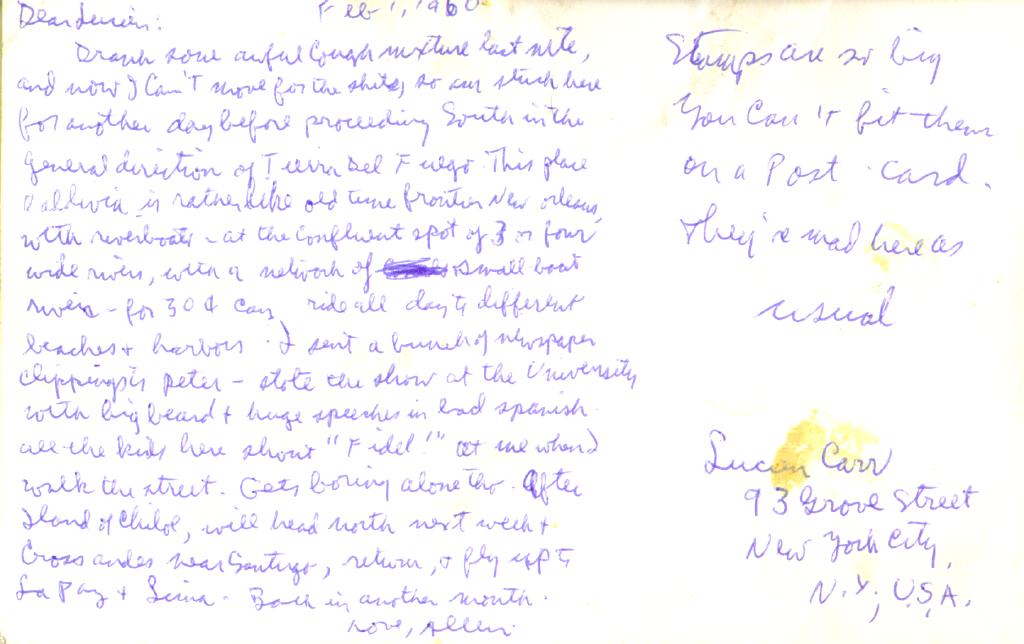 Feb 1, 1960
Dear Lucien:
Drank some awful Cough mixture last nite,
and now I Can't move for the shits, so am stuck here
for another day before proceeding South in the
general direction of Tierra Del Fuego. This place
Valdivia is rather like old time frontier New orleans,
with riverboats - at the confluent spot of 3 or four
wide rivers, with a network of small boat
rivers - for 30¢ can ride all day to different
beaches + harbors. I sent a bunch of newspaper
clippings to peter - stole the show at the University
with big beard + huge speeches in bad spanish.
all the kids here shout "Fidel!" at me when I
walk the street. Gets boring alone tho. After
Island of Chiloe, will head north next week +
Cross andes near Santiago, return, + fly up to
La Paz + Lima. Back in another month.
Love, Allen
Stamps are so big
You Can't fit them
on a Post-card.
They're mad here as
usual
Lucien Carr
93 Grove Street
New York City,
N.Y., U.S.A.